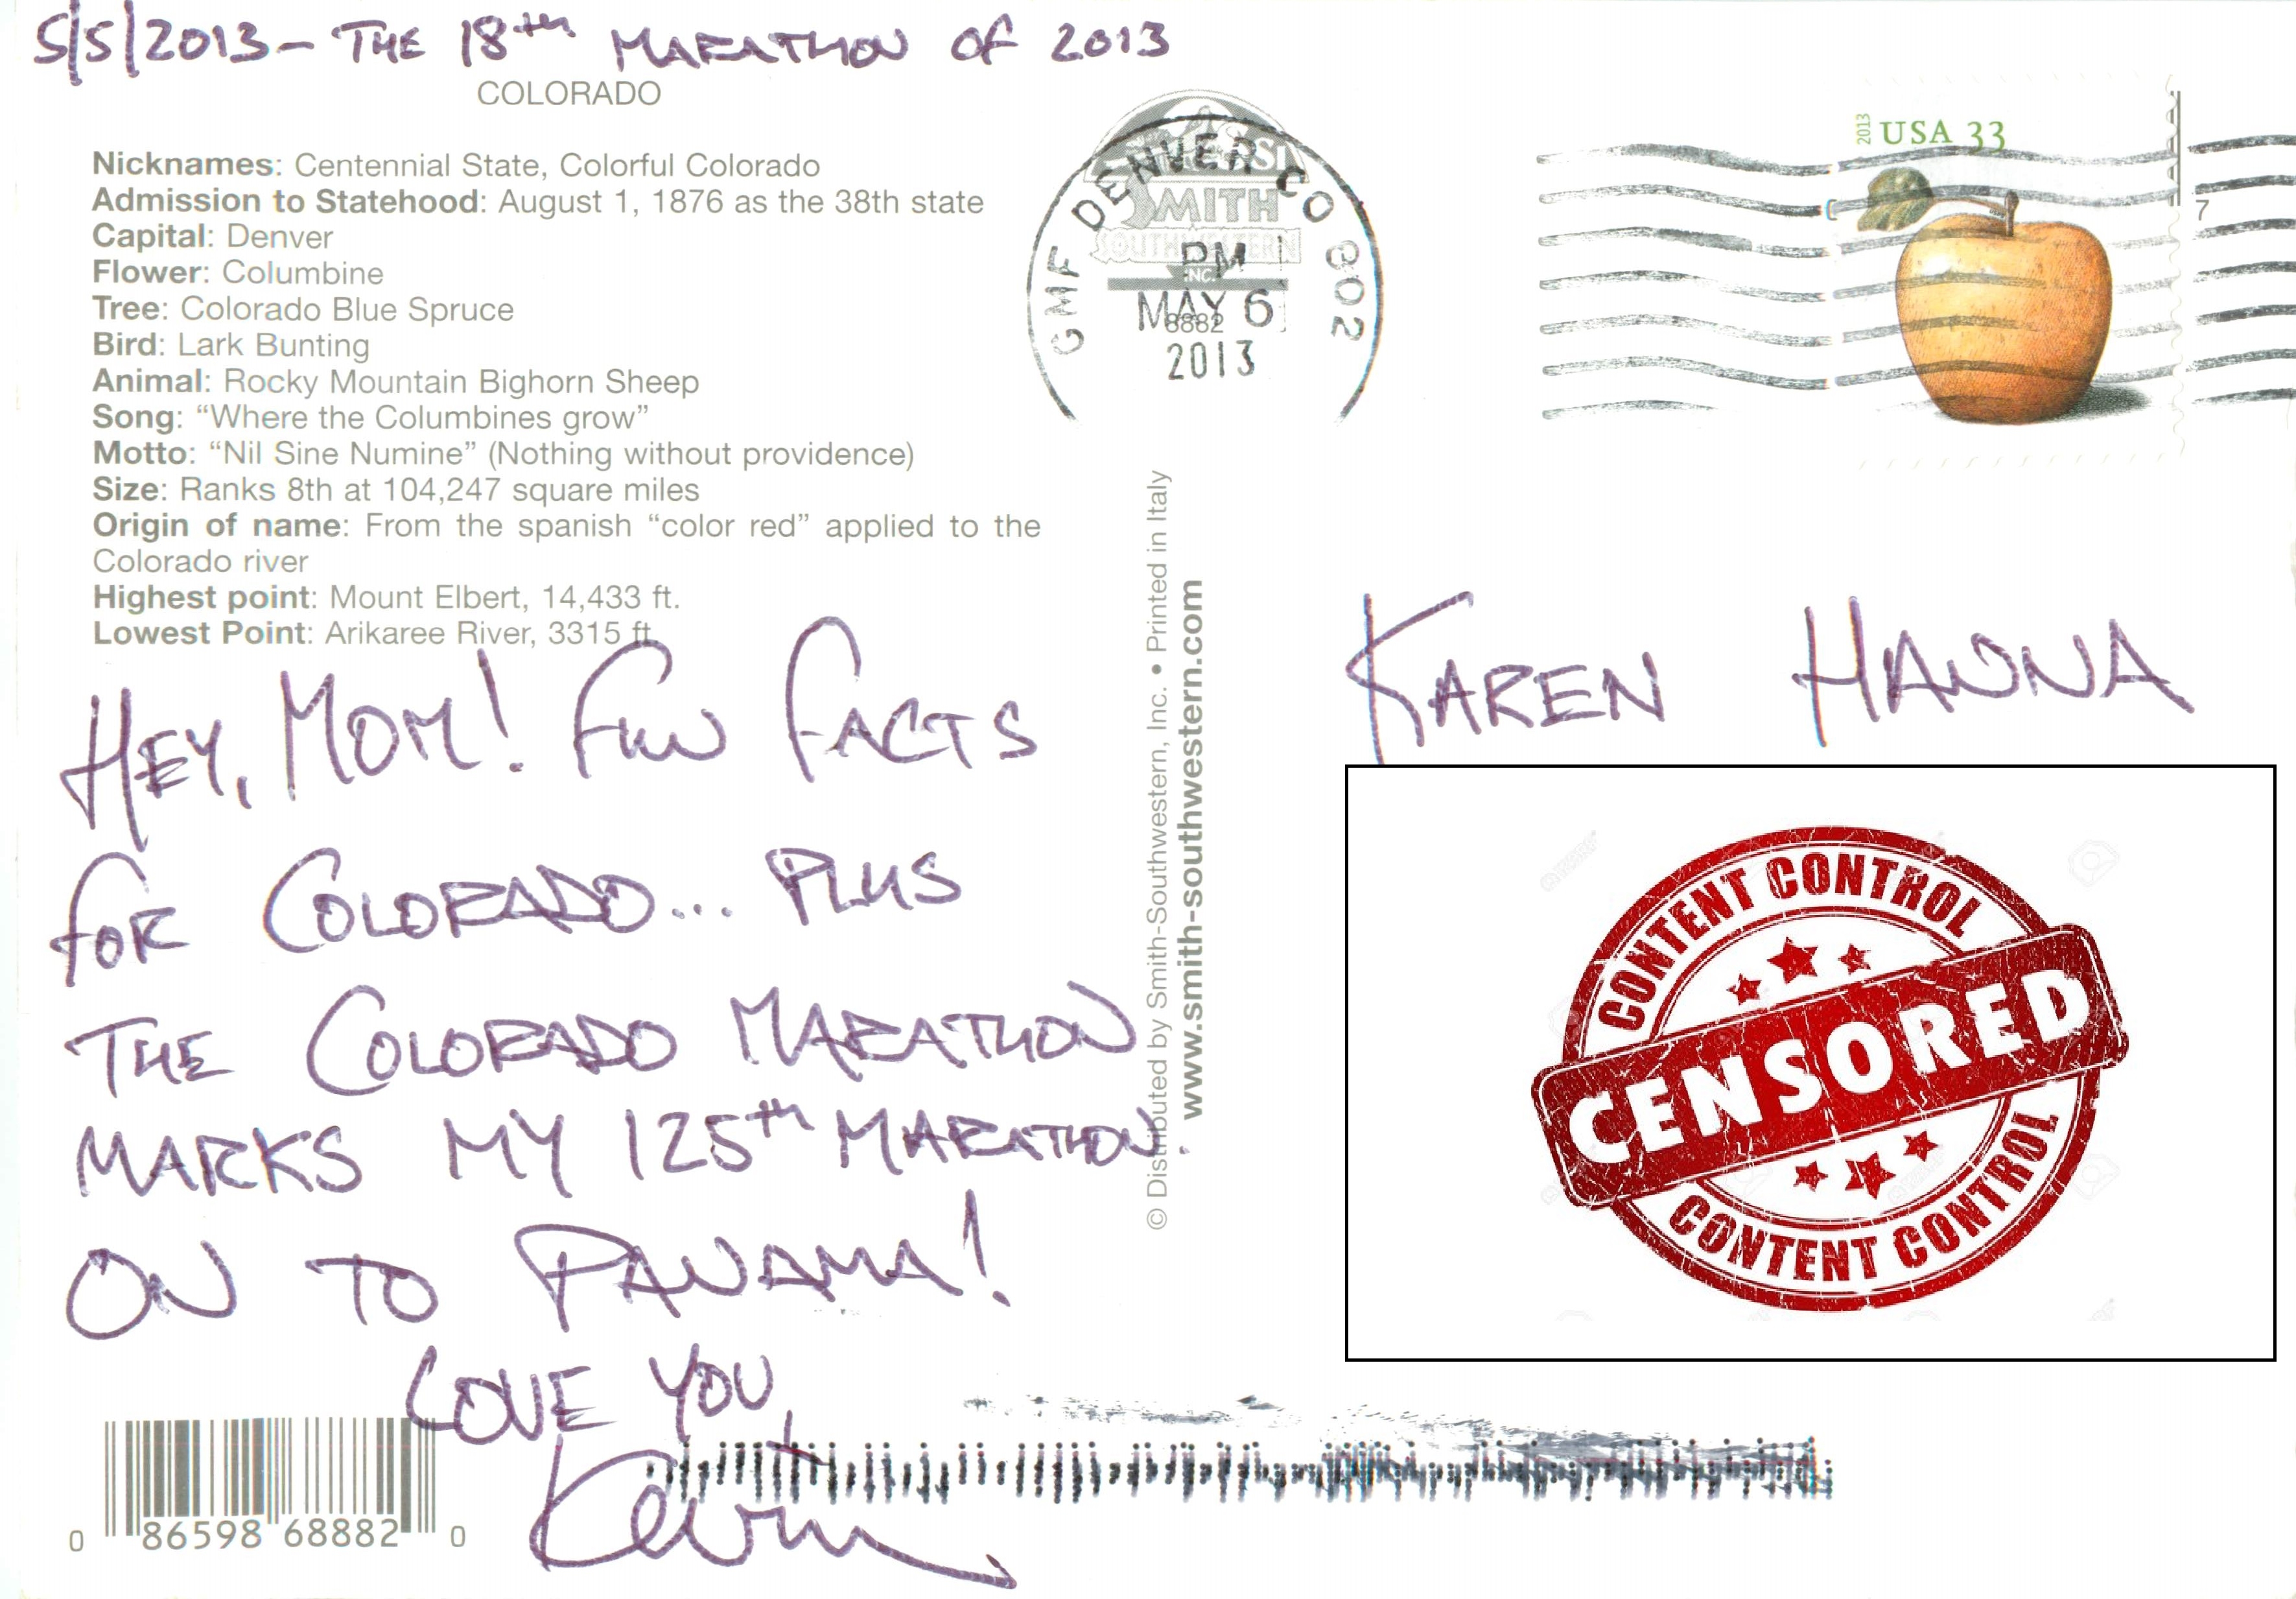 5/5/2013 - THE 18th MARATHON OF 2013
COLORADO
Nicknames: Centennial State, Colorful Colorado
Admission to Statehood: August 1, 1876 as the 38th state
Capital: Denver
Flower: Columbine
Tree: Colorado Blue Spruce
Bird: Lark Bunting
Animal: Rocky Mountain Bighorn Sheep
Song: “Where the Columbines grow”
Motto: “Nil Sine Numine” (Nothing without providence)
Size: Ranks 8th at 104,247 square miles
Origin of name: From the spanish “color red” applied to the
Colorado river
Highest point: Mount Elbert, 14,433 ft.
Lowest Point: Arikaree River, 3315 ft
HEY, MOM! FUN FACTS
FOR COLORADO... PLUS
THE COLORADO MARATHON
MARKS MY 125th MARATHON.
ON TO PANAMA!
LOVE YOU,
Kevin
0 86598 68882 0
GMF DENVER CO 802
SMITH
SOUTHWESTERN
INC.
PM
MAY 6
8882
2013
© Distributed by Smith-Southwestern, Inc. • Printed in Italy
www.smith-southwestern.com
2013 USA 33
7
KAREN HANNA
CONTENT CONTROL
CENSORED
CONTENT CONTROL